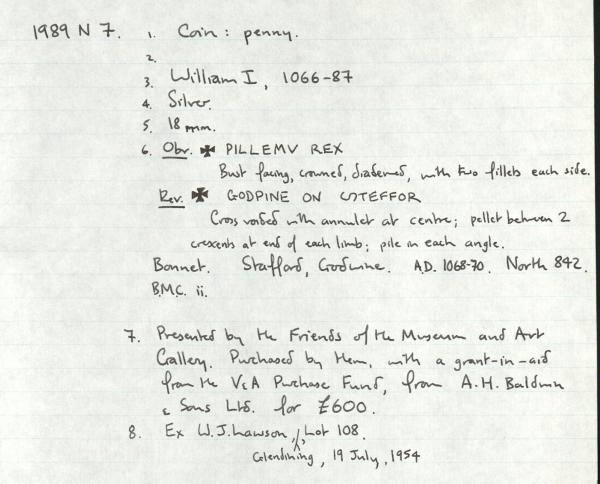 1989 N 7. 1. Coin: penny.
2.
3. William I, 1066-87
4. Silver.
5. 18 mm.
6. Obv. ✠ PILLEMV REX
Bust facing, crowned, diademed, with two fillets each side.
Rev. ✠ GODPINE ON STEFFOR
Cross voided with annulet at centre; pellet between 2
crescents at end of each limb; pile in each angle.
Bonnet. Stafford, Godwine. A.D. 1068-70. North 842.
B.M.C. ii.
7. Presented by the Friends of the Museum and Art
Gallery. Purchased by them, with a grant-in-aid
from the V&A Purchase Fund, from A.H. Baldwin
& Sons Ltd. for £600.
8. Ex W.J. Lawson, Lot 108.
Glendining, 19 July, 1954